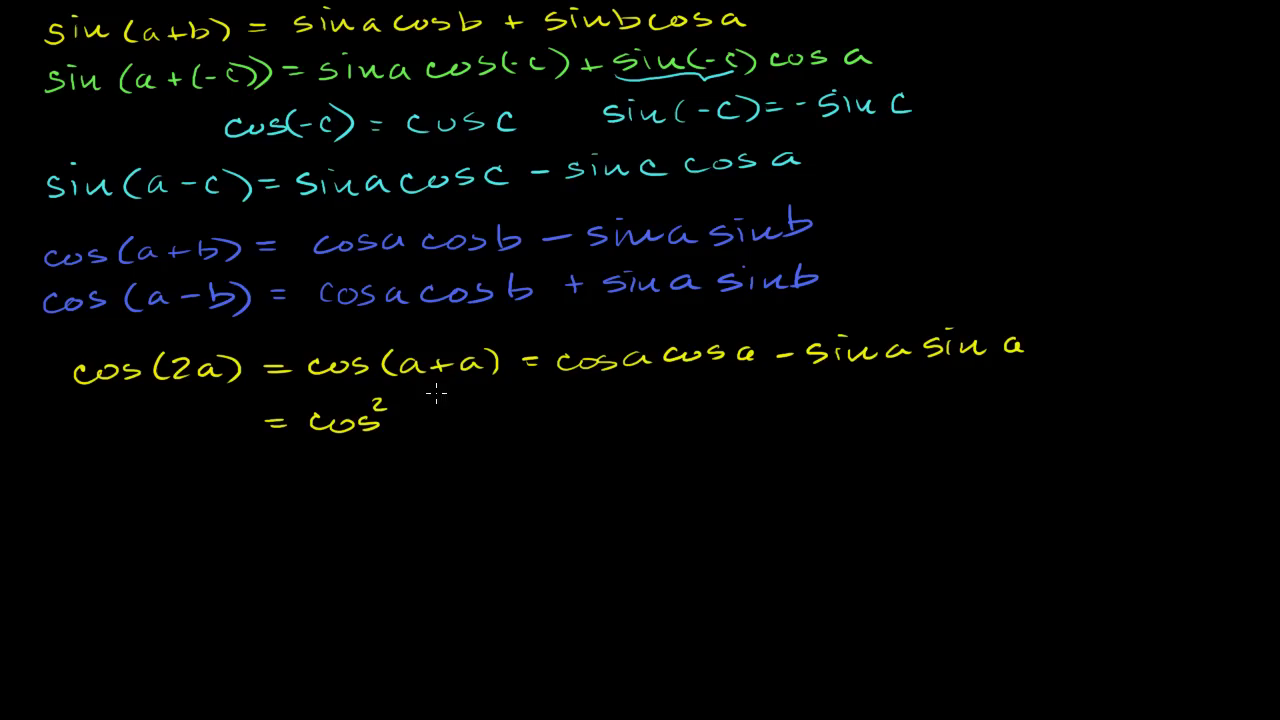 sin (a+b) = sin a cos b + sin b cos a
sin (a + (-c)) = sin a cos(-c) + sin(-c) cos a
cos(-c) = cos c sin(-c) = - sin c
sin (a - c) = sin a cos c - sin c cos a
cos (a+b) = cos a cos b - sin a sin b
cos (a - b) = cos a cos b + sin a sin b
cos (2a) = cos (a+a) = cos a cos a - sin a sin a
= cos²